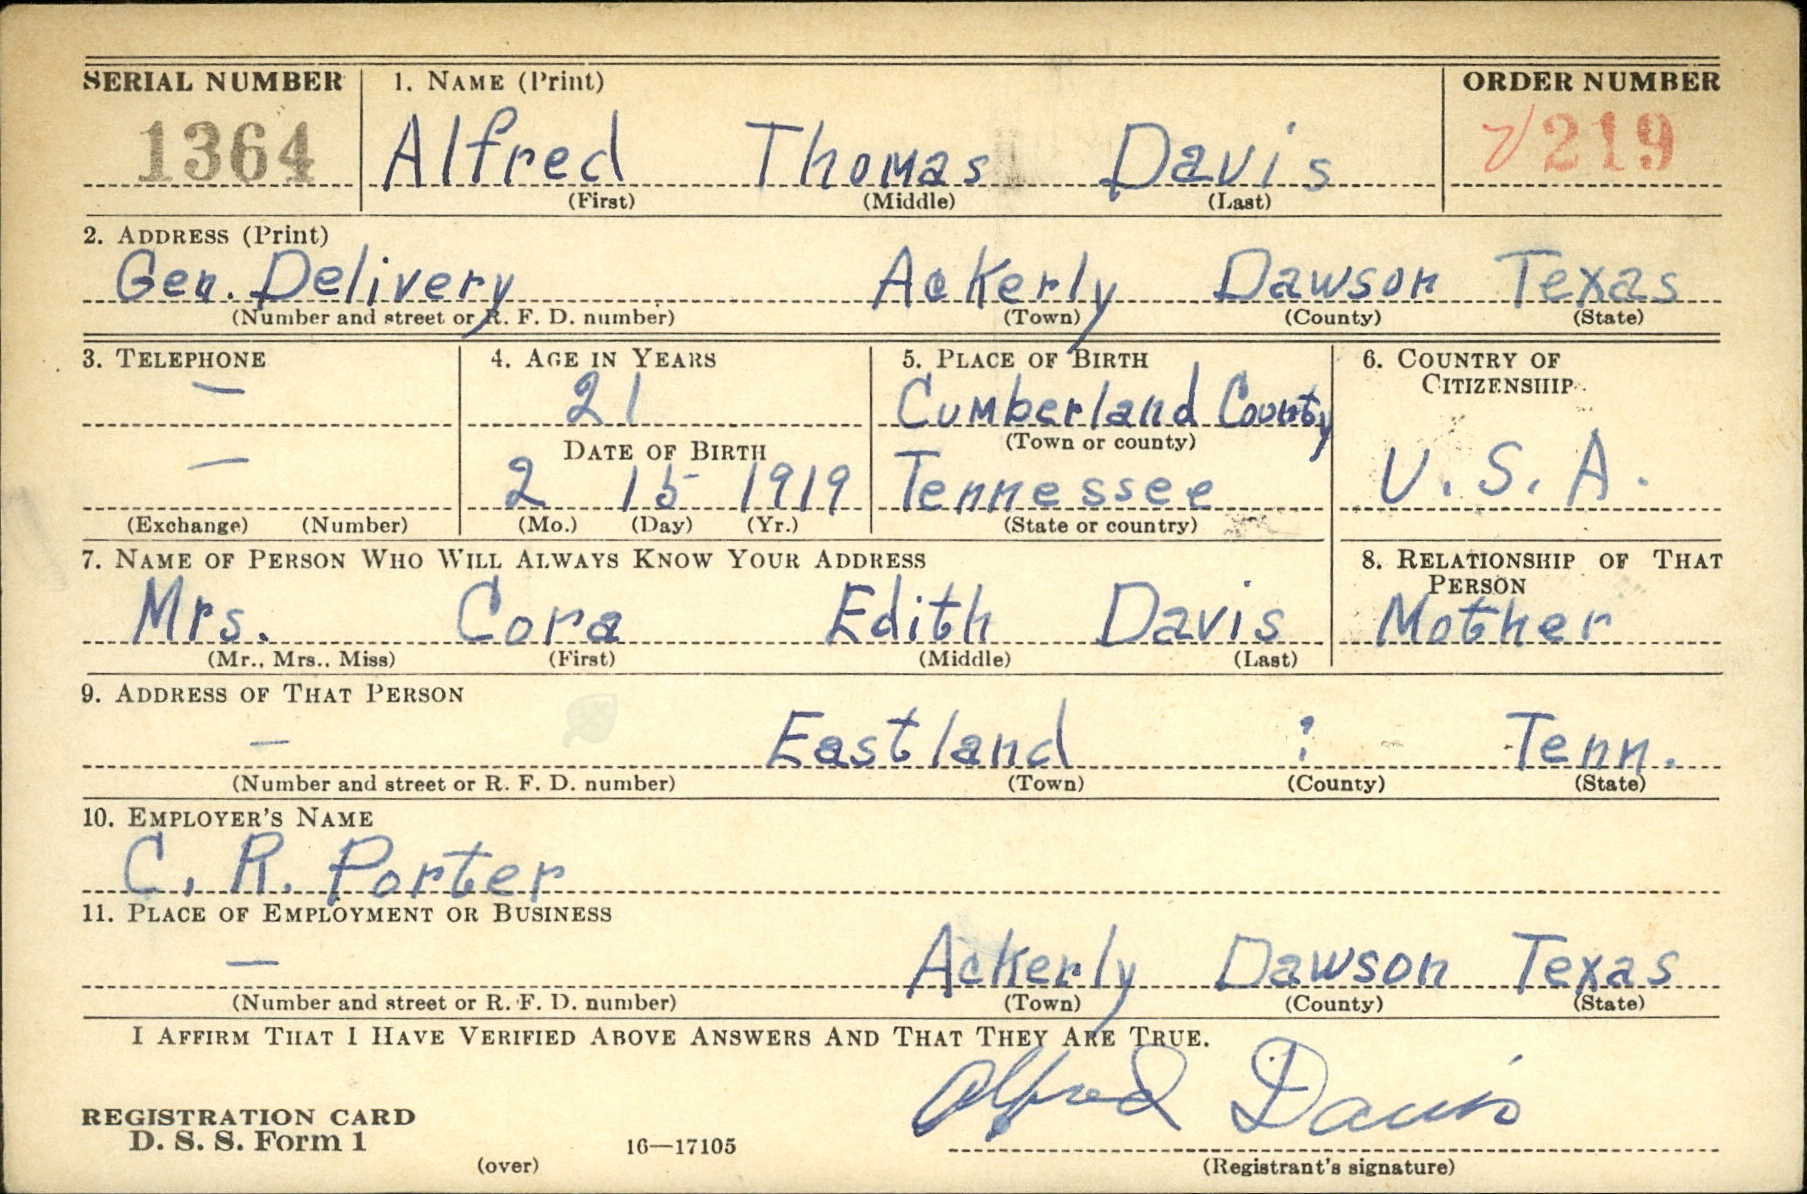 SERIAL NUMBER 1. NAME (Print) ORDER NUMBER
1364 Alfred Thomas Davis V219
(First) (Middle) (Last)
2. ADDRESS (Print)
Gen. Delivery Ackerly Dawson Texas
(Number and street or R. F. D. number) (Town) (County) (State)
3. TELEPHONE 4. AGE IN YEARS 5. PLACE OF BIRTH 6. COUNTRY OF
CITIZENSHIP
— 21 Cumberland County
DATE OF BIRTH (Town or county)
— 2 15 1919 Tennessee U.S.A.
(Exchange) (Number) (Mo.) (Day) (Yr.) (State or country)
7. NAME OF PERSON WHO WILL ALWAYS KNOW YOUR ADDRESS 8. RELATIONSHIP OF THAT
PERSON
Mrs. Cora Edith Davis Mother
(Mr., Mrs., Miss) (First) (Middle) (Last)
9. ADDRESS OF THAT PERSON
— Eastland ? Tenn.
(Number and street or R. F. D. number) (Town) (County) (State)
10. EMPLOYER'S NAME
C. R. Porter
11. PLACE OF EMPLOYMENT OR BUSINESS
— Ackerly Dawson Texas
(Number and street or R. F. D. number) (Town) (County) (State)
I AFFIRM THAT I HAVE VERIFIED ABOVE ANSWERS AND THAT THEY ARE TRUE.
Alfred Davis
REGISTRATION CARD
D. S. S. Form 1 16—17105
(over) (Registrant's signature)